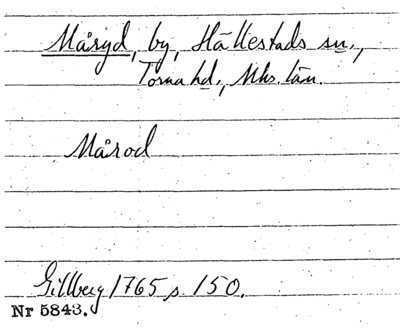 Måryd, by, Hällestads sn.,
Torna hd., Mhs. län.
Mårod
Gillberg 1765 s. 150.
Nr 5843.